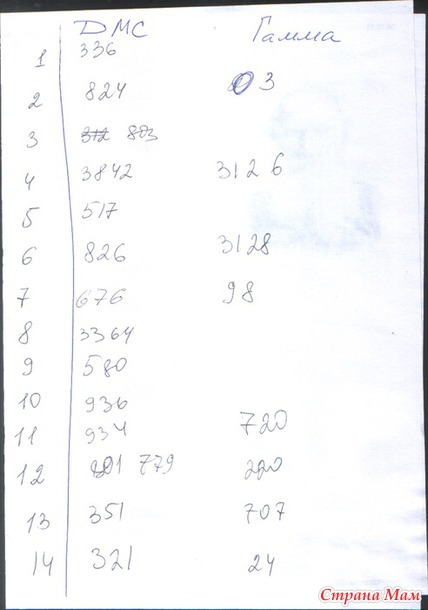 ДМС Гамма
1 336
2 824 03
3 312 803
4 3842 3126
5 517
6 826 3128
7 676 98
8 3364
9 580
10 936
11 934 720
12 801 779 220
13 351 707
14 321 24
Страна Мам